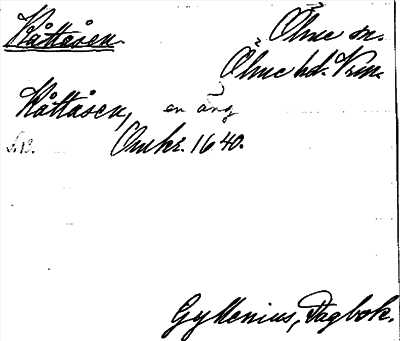 Kåttåsen.
Ölme sn.
Ölme hd. Vrm.
Kåttåsen, en äng
s. 13.
Omkr. 1640.
Gyllenius, Dagbok.